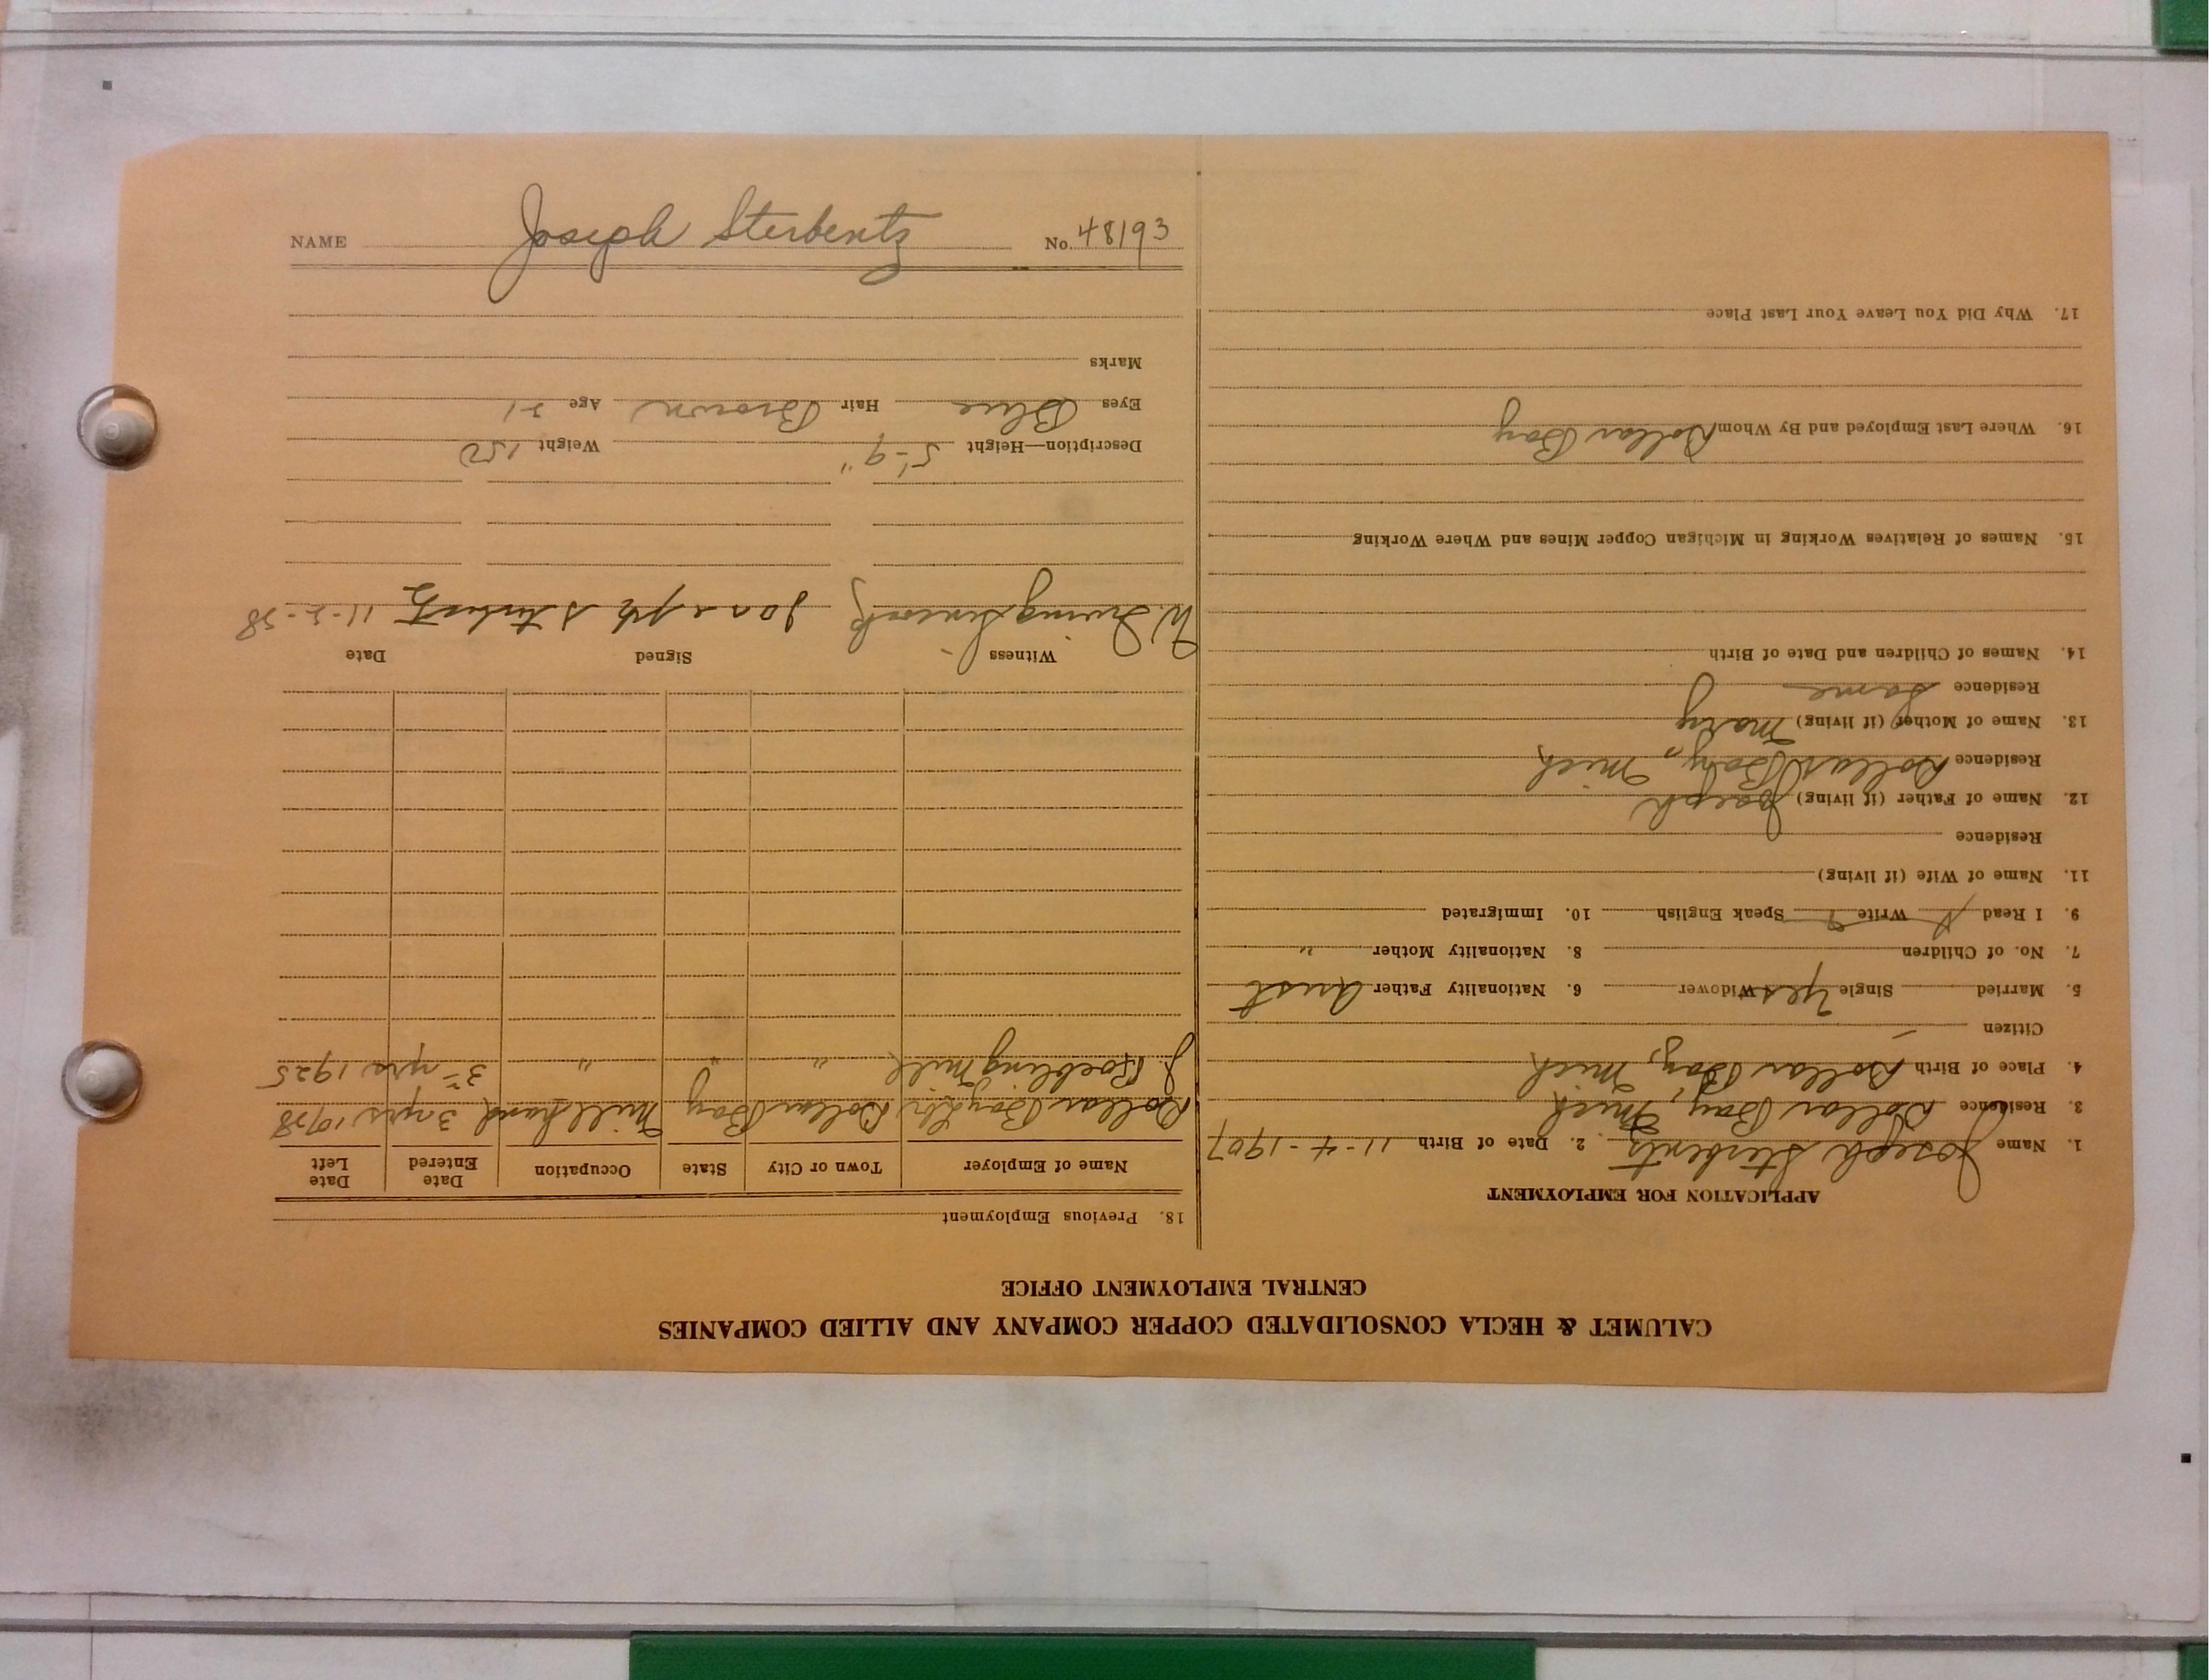 NAME Joseph Sterbentz No. 48193
CALUMET & HECLA CONSOLIDATED COPPER COMPANY AND ALLIED COMPANIES
CENTRAL EMPLOYMENT OFFICE
APPLICATION FOR EMPLOYMENT
1. Name Joseph Sterbentz 2. Date of Birth 11-4-1907
3. Residence Dollar Bay, Mich
4. Place of Birth Dollar Bay, Mich
Citizen
5. Married Single Yes Widower 6. Nationality Father Aust
7. No. of Children 8. Nationality Mother "
9. I Read Write Speak English 10. Immigrated
11. Name of Wife (if living)
Residence
12. Name of Father (if living) Joseph
Residence Dollar Bay, Mich
13. Name of Mother (if living) Mary
Residence Same
14. Names of Children and Date of Birth
15. Names of Relatives Working in Michigan Copper Mines and Where Working
16. Where Last Employed and By Whom Dollar Bay
17. Why Did You Leave Your Last Place
18. Previous Employment
Name of Employer Town or City State Occupation Date Entered Date Left
Dollar Bay Dollar Bay Mill hand 3 yrs
J. Roebling Mill " " " 3 yrs 1925
Witness Signed Date
W. Irving Joseph Sterbentz
Description—Height 5'-9" Weight 150
Eyes Blue Hair Brown Age 21
Marks